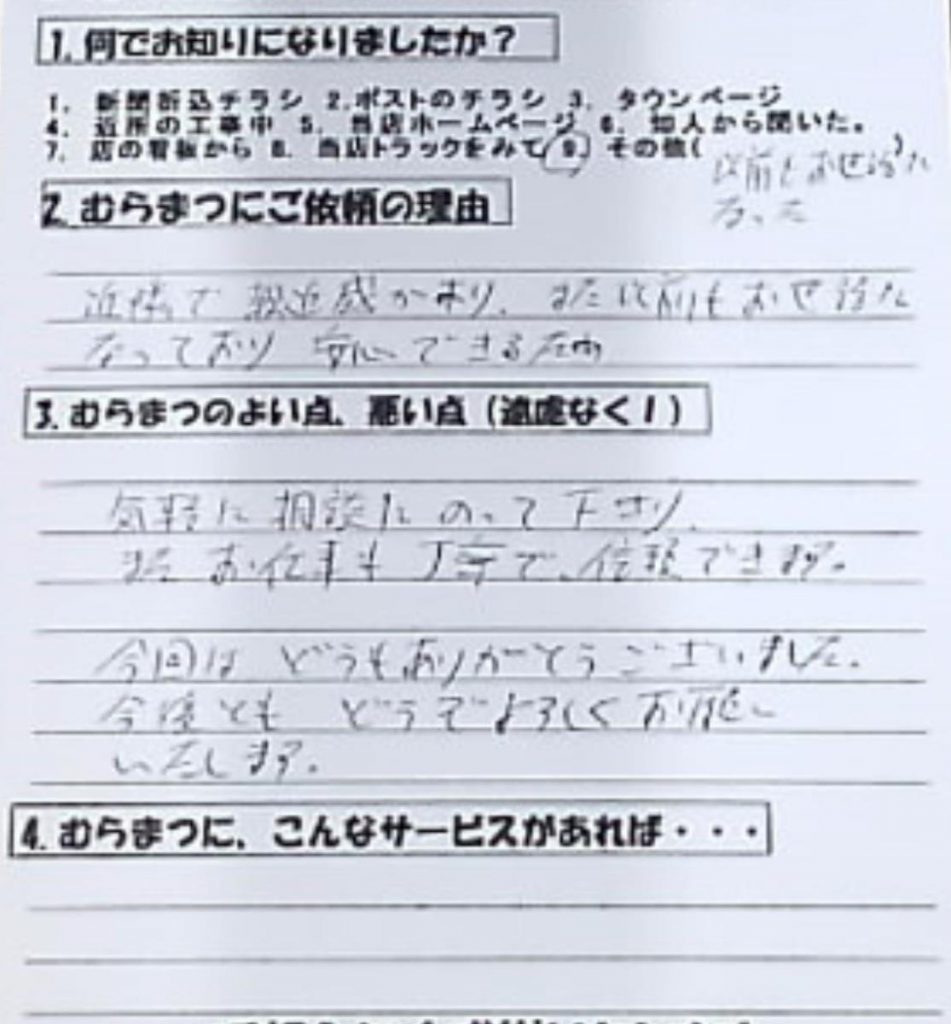 1. 何でお知りになりましたか？
1. 新聞折込チラシ 2.ポストのチラシ 3. タウンページ
4. 近所の工事中 5. 当店ホームページ 6. 知人から聞いた。
7. 店の看板から 8. 当店トラックをみて 9. その他(
以前もお世話に
なった
2. むらまつにご依頼の理由
近隣で親近感があり、また以前もお世話に
なっており 安心できるため
3. むらまつのよい点、悪い点（遠慮なく！）
気軽に相談にのって下さり、
また お仕事も 丁寧で、信頼できます。
今回は どうもありがとうございました。
今後とも どうぞよろしくお願い
いたします。
4. むらまつに、こんなサービスがあれば・・・